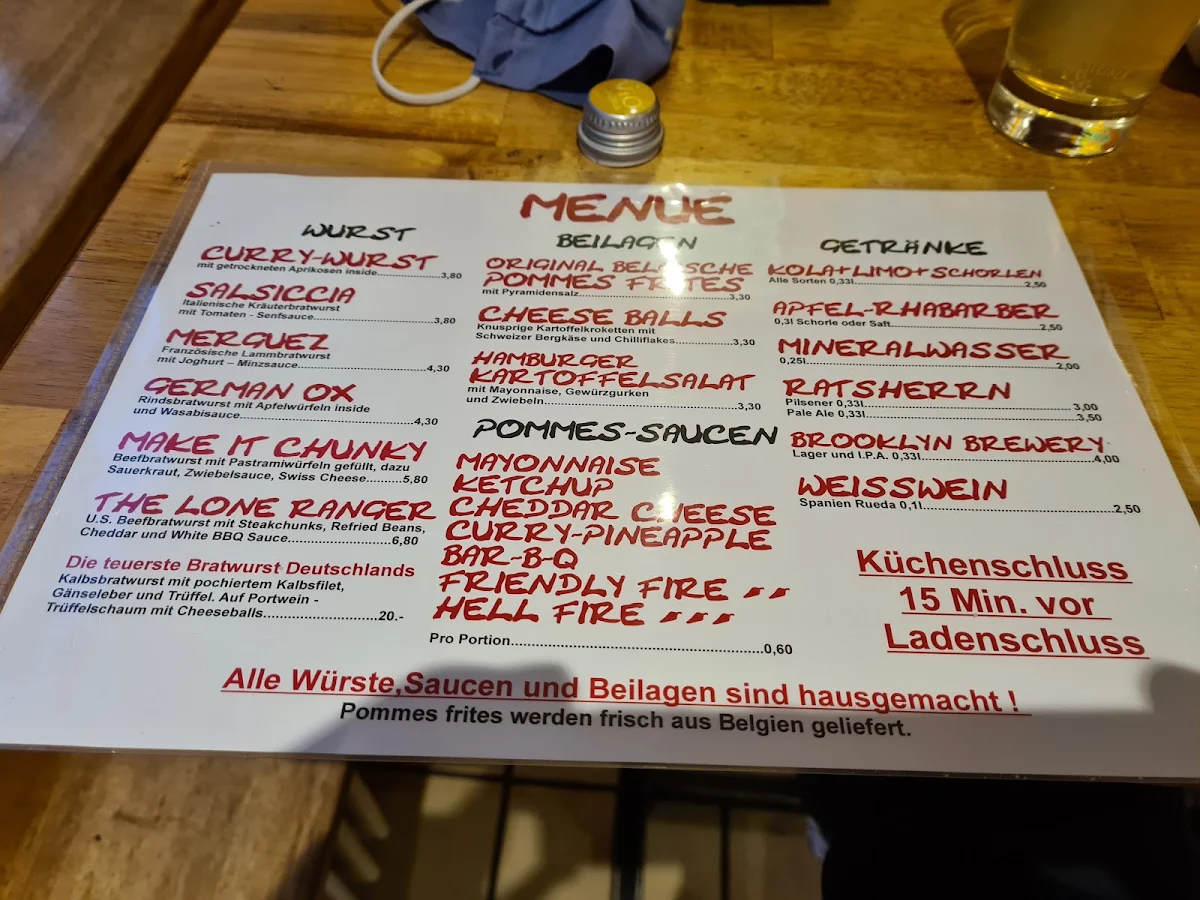 MENUE
WURST
CURRY-WURST
mit getrockneten Aprikosen inside...................3,80
SALSICCIA
Italienische Kräuterbratwurst
mit Tomaten - Senfsauce...............................3,80
MERGUEZ
Französische Lammbratwurst
mit Joghurt – Minzsauce................................4,30
GERMAN OX
Rindsbratwurst mit Apfelwürfeln inside
und Wasabisauce...........................................4,30
MAKE IT CHUNKY
Beefbratwurst mit Pastramiwürfeln gefüllt, dazu
Sauerkraut, Zwiebelsauce, Swiss Cheese.........5,80
THE LONE RANGER
U.S. Beefbratwurst mit Steakchunks, Refried Beans,
Cheddar und White BBQ Sauce.........................6,80
Die teuerste Bratwurst Deutschlands
Kalbsbratwurst mit pochiertem Kalbsfilet,
Gänseleber und Trüffel. Auf Portwein -
Trüffelschaum mit Cheeseballs............................20.-
BEILAGEN
ORIGINAL BELGISCHE
POMMES FRITES
mit Pyramidensalz.......................................3,30
CHEESE BALLS
Knusprige Kartoffelkroketten mit
Schweizer Bergkäse und Chilliflakes...............3,30
HAMBURGER
KARTOFFELSALAT
mit Mayonnaise, Gewürzgurken
und Zwiebeln................................................3,30
POMMES-SAUCEN
MAYONNAISE
KETCHUP
CHEDDAR CHEESE
CURRY-PINEAPPLE
BAR-B-Q
FRIENDLY FIRE
HELL FIRE
Pro Portion.............................................................0,60
GETRÄNKE
KOLA+LIMO+SCHORLEN
Alle Sorten 0,33l............................................2,50
APFEL-RHABARBER
0,3l Schorle oder Saft......................................2,50
MINERALWASSER
0,25l...............................................................2,00
RATSHERRN
Pilsener 0,33l.................................................... 3,00
Pale Ale 0,33l.....................................................3,50
BROOKLYN BREWERY
Lager und I.P.A. 0,33l..........................................4,00
WEISSWEIN
Spanien Rueda 0,1l..............................................2,50
Küchenschluss
15 Min. vor
Ladenschluss
Alle Würste,Saucen und Beilagen sind hausgemacht !
Pommes frites werden frisch aus Belgien geliefert.